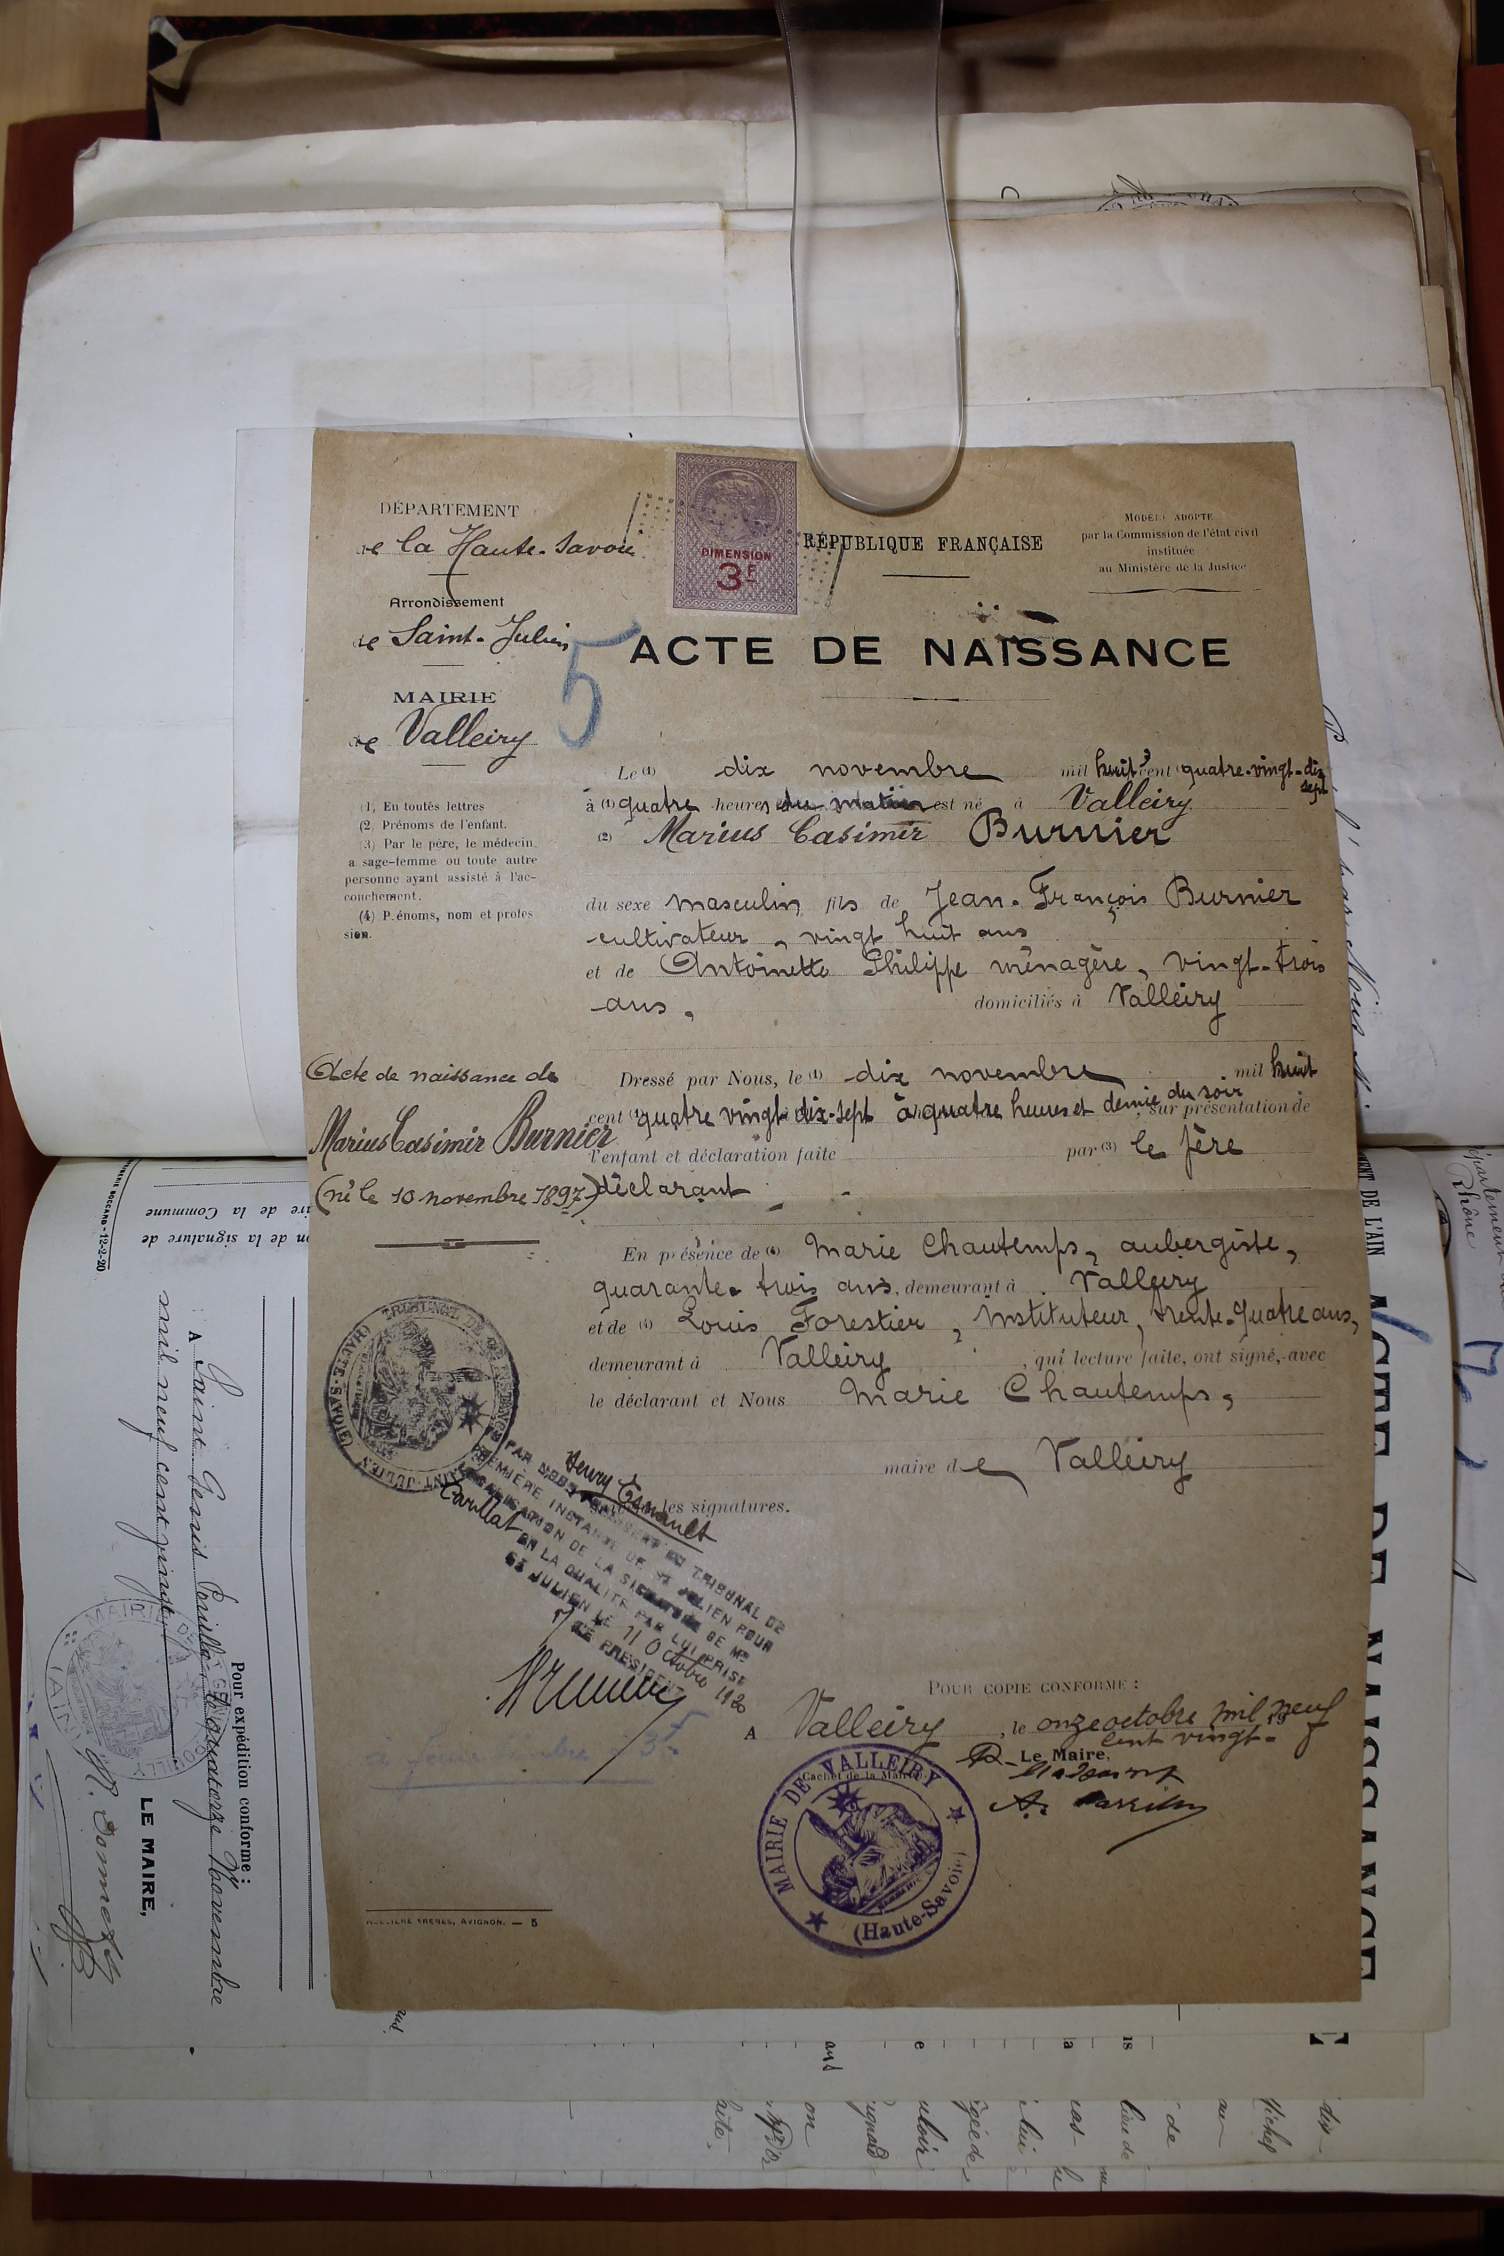 DÉPARTEMENT
de la Haute-Savoie
Arrondissement
de Saint-Julien
MAIRIE
de Valleiry
5
DIMENSION
3F
RÉPUBLIQUE FRANÇAISE
MODÈLE ADOPTÉ
par la Commission de l'état civil
instituée
au Ministère de la Justice
ACTE DE NAISSANCE
(1) En toutes lettres
(2) Prénoms de l'enfant.
(3) Par le père, le médecin
a sage-femme ou toute autre
personne ayant assisté à l'ac-
couchement.
(4) Prénoms, nom et profes
sion.
Le (1) dix novembre mil huit cent quatre-vingt-dix
sept
à (1) quatre heures du matin est né à Valleiry
(2) Marius Casimir Burnier
du sexe masculin fils de Jean-François Burnier
cultivateur, vingt huit ans
et de Antoinette Philippe ménagère, vingt-trois
ans, domiciliés à Valleiry
Acte de naissance de
Marius Casimir Burnier
(né le 10 novembre 1897)
Dressé par Nous, le (1) dix novembre mil huit
cent (1) quatre vingt dix-sept à quatre heures et demie du soir, sur présentation de
l'enfant et déclaration faite par (3) le père
déclarant
En présence de (4) Marie Chautemps, aubergiste,
quarante-trois ans, demeurant à Valleiry
et de (4) Louis Forestier, instituteur, trente-quatre ans,
demeurant à Valleiry, qui lecture faite, ont signé, avec
le déclarant et Nous Marie Chautemps,
maire de Valleiry
les signatures.
TRIBUNAL DE PREMIÈRE INSTANCE SAINT-JULIEN (HAUTE-SAVOIE)
VU PAR NOUS PRÉSIDENT DU TRIBUNAL DE
PREMIÈRE INSTANCE DE ST JULIEN POUR
LÉGALISATION DE LA SIGNATURE DE Mr
EN LA QUALITÉ PAR LUI PRISE
ST JULIEN LE 11 Octobre 1920
LE PRÉSIDENT
POUR COPIE CONFORME :
A Valleiry, le onze octobre mil neuf
cent vingt-
Le Maire,
Cachet de la Mairie
MAIRIE DE VALLEIRY
(Haute-Savoie)
FRÈRES, AVIGNON. — 5
12-2-20
on de la signature de
ire de la Commune
Pour expédition conforme :
A Saint Genis Pouilly le quatorze Novembre
mil neuf cent vingt
LE MAIRE,
MAIRIE
(AIN)
DE L'AIN
ACTE DE NAISSANCE
Rhône